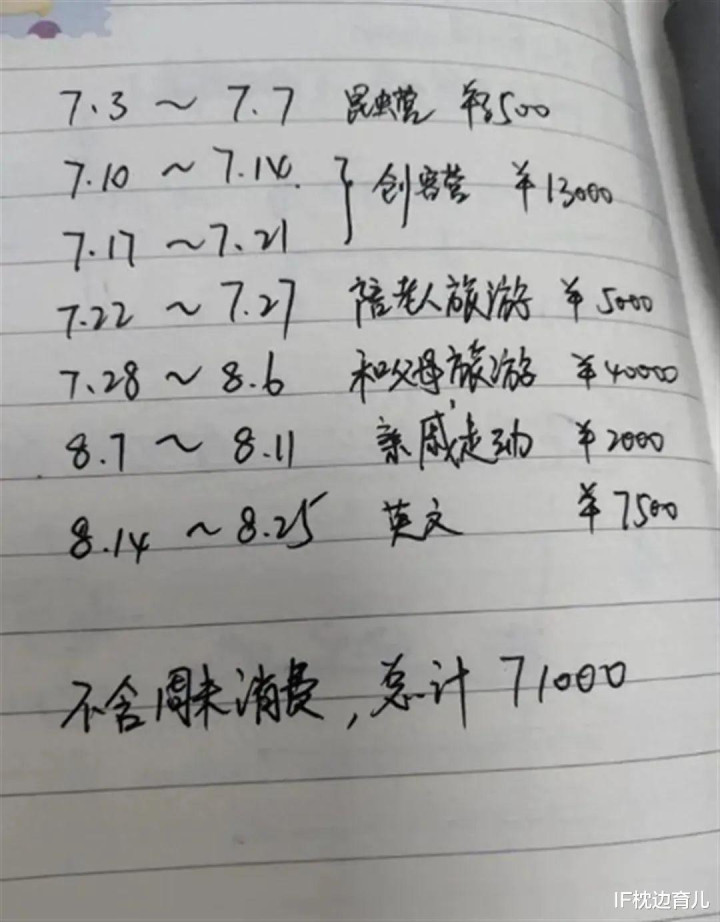 7.3 ~ 7.7 昆虫营 ¥3500
7.10 ~ 7.14 } 创客营 ¥13000
7.17 ~ 7.21
7.22 ~ 7.27 陪老人旅游 ¥5000
7.28 ~ 8.6 和父母旅游 ¥40000
8.7 ~ 8.11 亲戚走动 ¥2000
8.14 ~ 8.25 英文 ¥7500
不含周末消费,总计 71000
IF枕边育儿